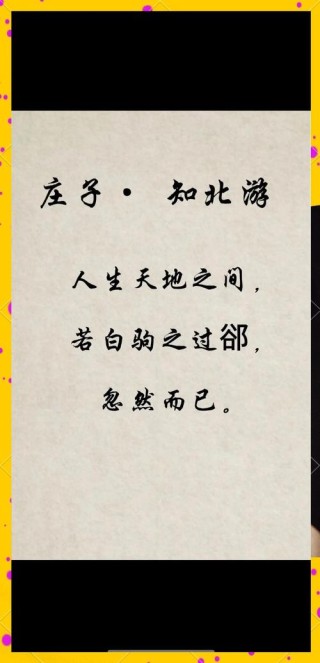 庄子·知北游
人生天地之间，
若白驹之过郤，
忽然而已。